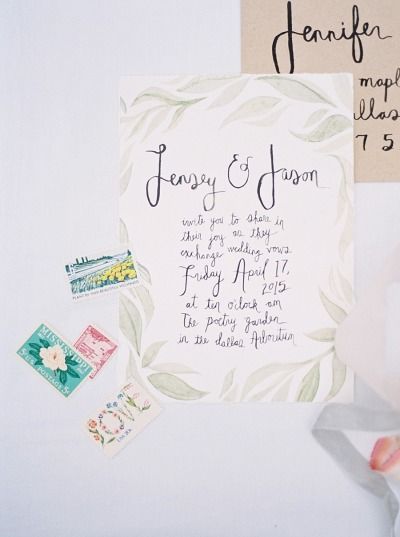 Jennifer
mapl
allas
7 5
Jensey & Jason
invite you to share in
their joy as they
exchange wedding vows
Friday April 17,
2015
at ten o'clock am
The poetry garden
in the dallas Arboretum
PLANT for MORE BEAUTIFUL HIGHWAYS
MISSISSIPPI
5c Postage 5c
LOVE
USA 20c